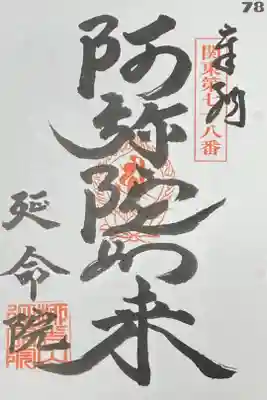 78
奉拝
関東第七十八番
阿弥陀如来
延命院